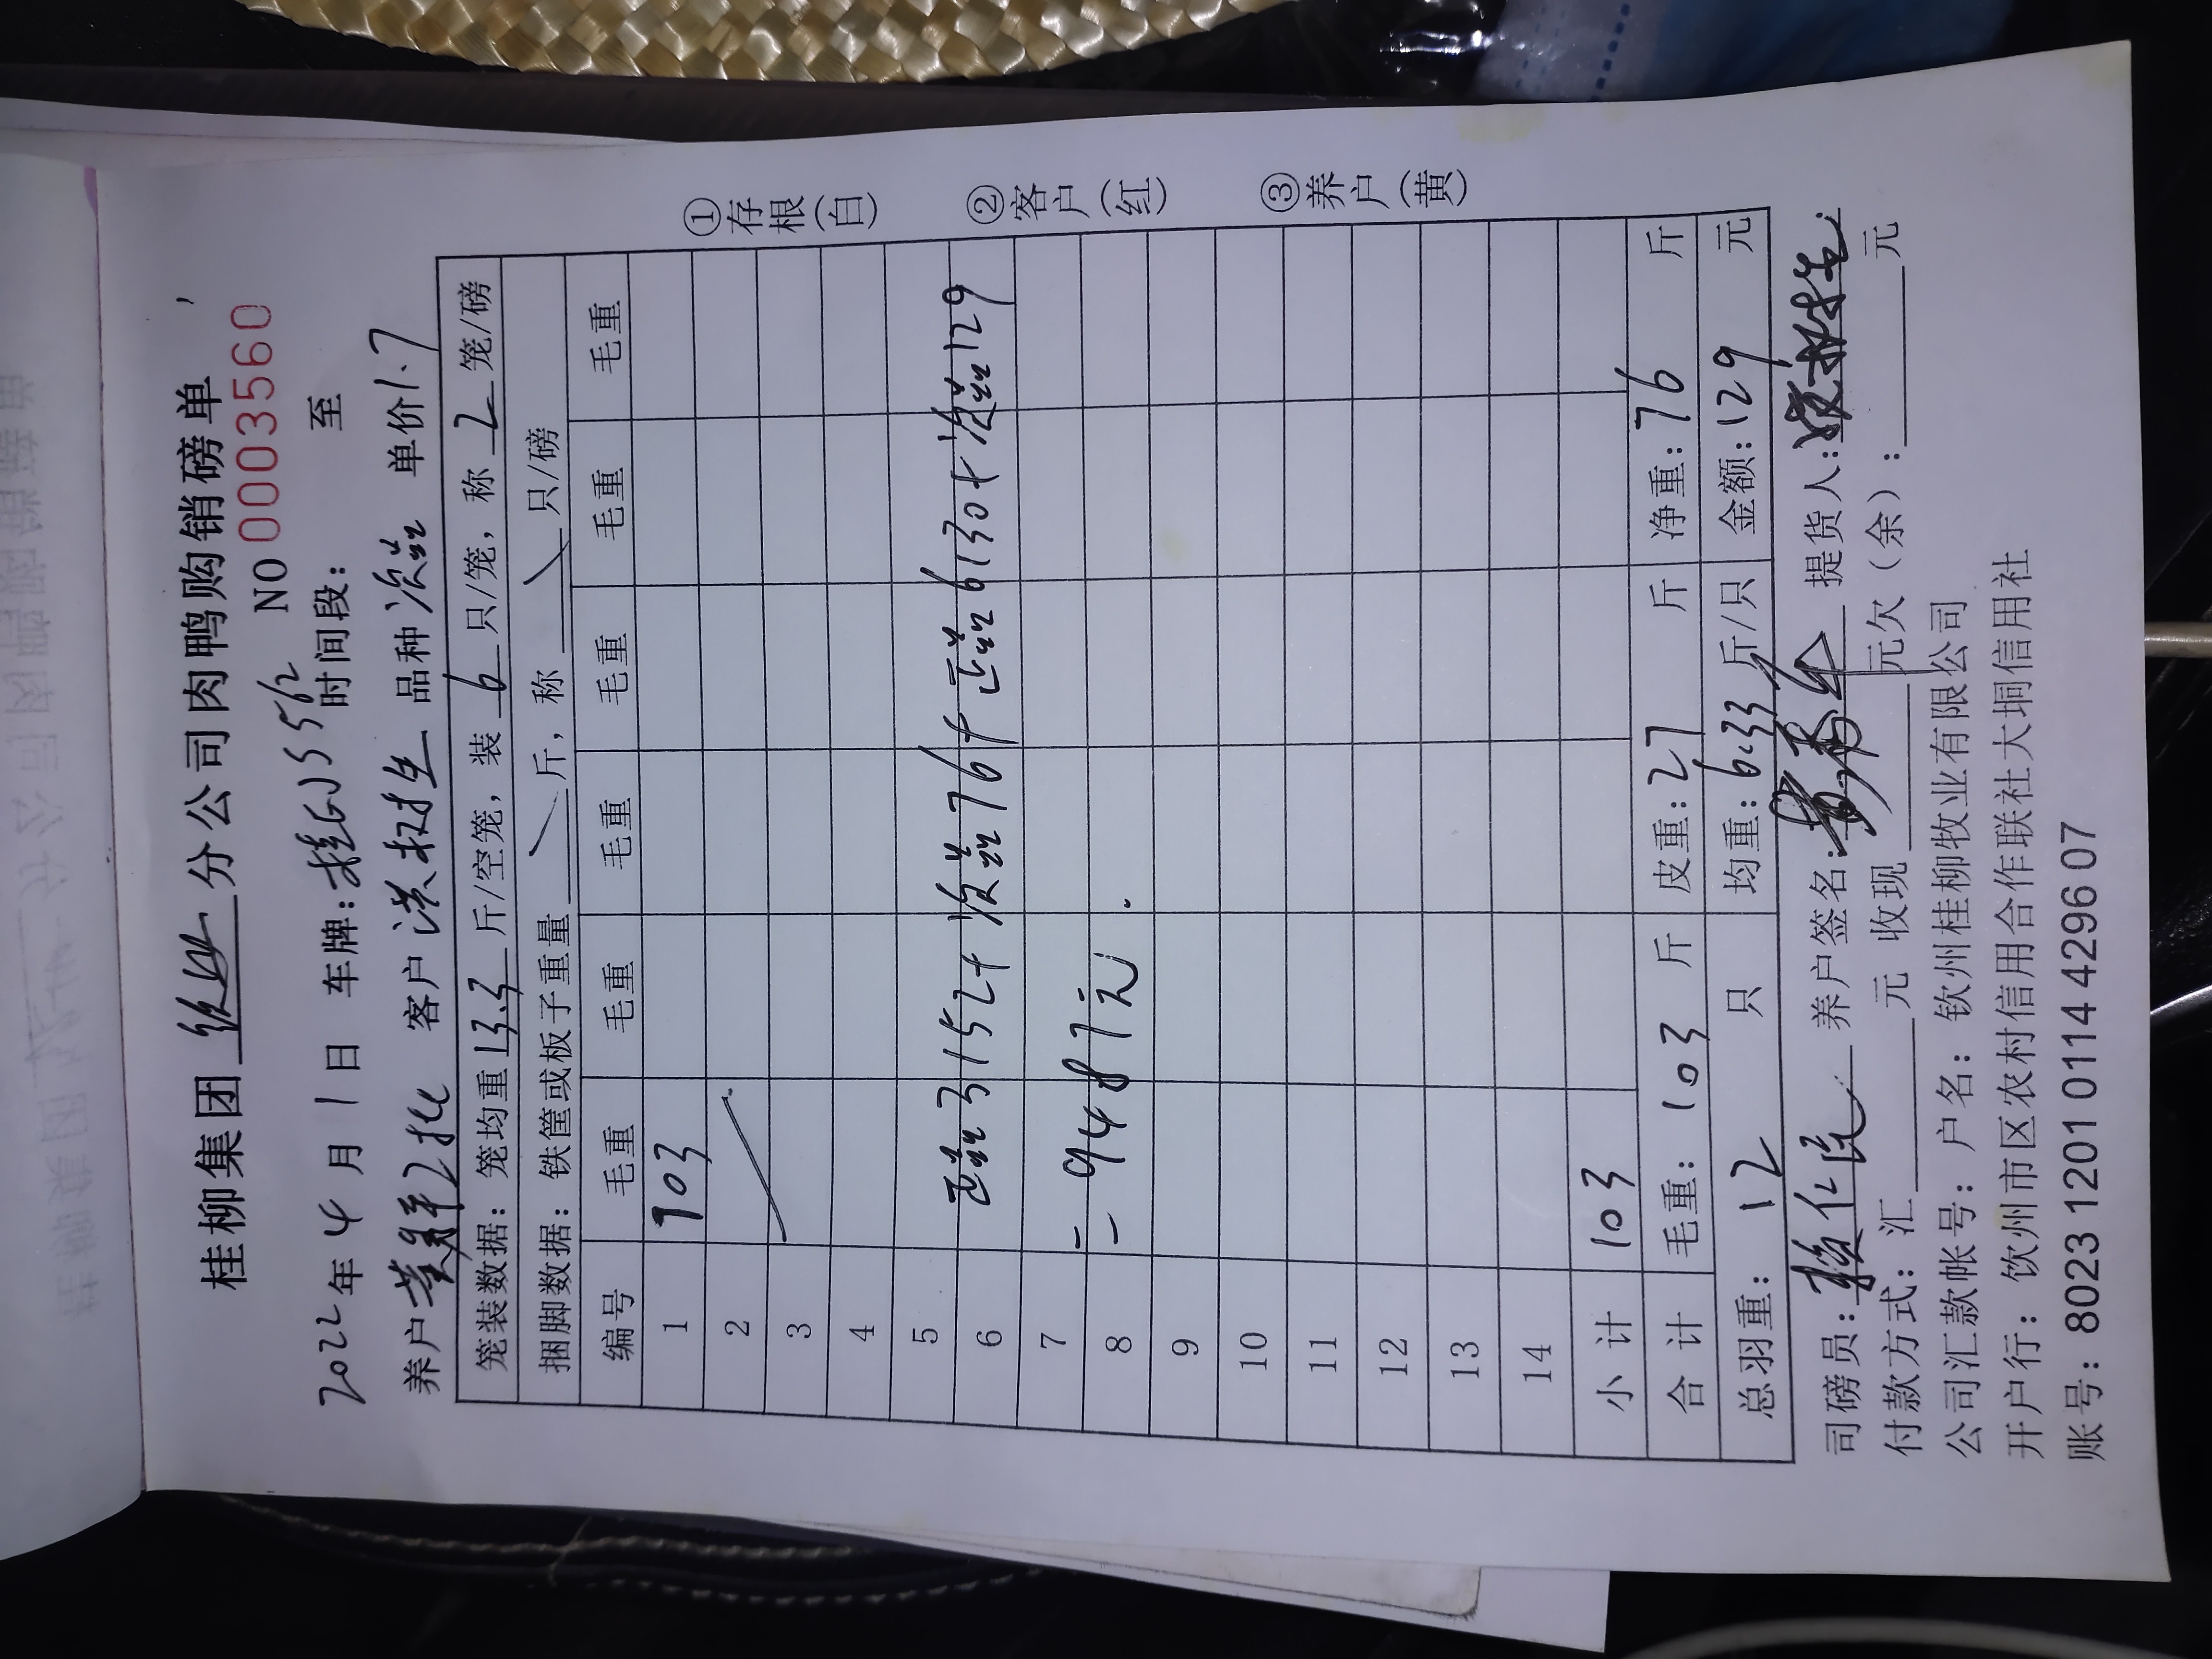 桂柳集团 分公司肉鸭购销磅单
NO 0003560
2022年 4 月 1 日 车牌: 桂 J5562 时间段: 至
养户 2批 客户 洪树生 品种 次品 单价 1.7
笼装数据: 笼均重 13.3 斤/空笼, 装 6 只/笼, 称 2 笼/磅
捆脚数据: 铁筐或板子重量 斤, 称 只/磅
编号 毛重 毛重 毛重 毛重 毛重 毛重
1 103
2
3
4
5
6 正品 3152+次品76+正品6130+次品129
7
8 =9487元
9
10
11
12
13
14
小计 103
合计 毛重: 103 斤 皮重: 27 斤 净重: 76 斤
总羽重: 12 只 均重: 6.33 斤/只 金额: 129 元
司磅员: 养户签名: 提货人:
付款方式: 汇 元 收现 元欠(余): 元
公司汇款帐号: 户名: 钦州桂柳牧业有限公司
开户行: 钦州市区农村信用合作联社大垌信用社
账号: 8023 1201 0114 4296 07
①存根(白)
②客户(红)
③养户(黄)